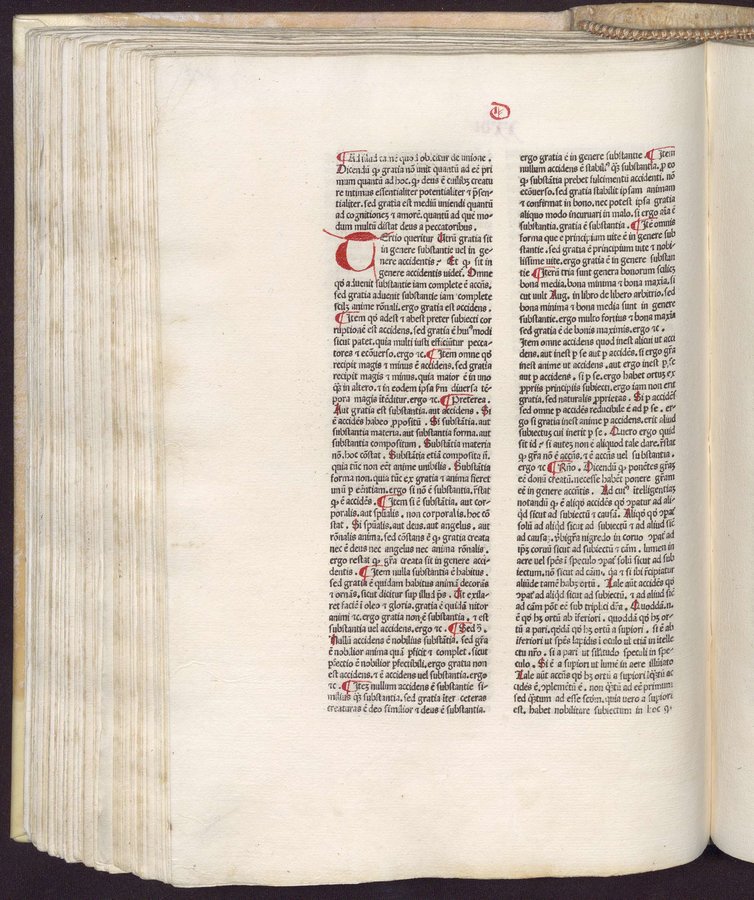 D
¶ Ad illud ca. ne quod obicitur de unione.
Dicendū ꝙ gratia nō unit quantū ad eē pri
mum quantū ad hoc. ꝙ deus ē cuilibꝫ creatu
re intimus essentialiter potentialiter ⁊ p̄sen-
tialiter. sed gratia est mediū uniendi quantū
ad cognitionez ⁊ amorē. quantū ad quē mo-
dum multū distat deus a peccatoribus.
Tercio queritur Utrū gratia sit
in genere substantie uel in ge-
nere accidentis? Et ꝙ sit in
genere accidentis videt. Omne
qđ aduenit substantie iam complete ē accñs.
sed gratia aduenit substantie iam complete
scilꝫ anime rōnali. ergo gratia est accidens.
¶ Item quod adest ⁊ abest preter subiecti cor
ruptionē est accidens. sed gratia ē huiꝰmodi
sicut patet. quia multi iusti efficiūtur pecca-
tores ⁊ ecōuerso. ergo ⁊c. ¶ Item omne qđ
recipit magis ⁊ minus ē accidens. sed gratia
recipit magis ⁊ minus. quia maior ē in uno
ꝙ̄ in altero. ⁊ in eodem ipsa ſm̄ diuersa tē-
pora magis itēditur. ergo ⁊c. ¶ Preterea.
Aut gratia est substantia. aut accidens. Si
ē accidēs habeo ꝓpositū. Si substātia. aut
substantia materia. aut substantia forma. aut
substantia compositum. Substātia materia
nō. hoc cōstat. Substātia etiā composita ñ.
quia tūc non eēt anime unibilis. Substātia
forma non. quia tūc ex gratia ⁊ anima fieret
unū ꝑ eēntiam. ergo si nō ē substātia. r̄stat
ꝙ ē accidēs. ¶ Item si ē substātia. aut cor-
poralis. aut spūalis. non corporalis. hoc cō
stat. Si spūalis. aut deus. aut angelus. aut
rōnalis anima. sed cōstans ē ꝙ gratia creata
nec ē deus nec angelus nec anima rōnalis.
ergo restat ꝙ gr̄a creata sit in genere acci-
dentis. ¶ Item nulla substantia ē habitus.
sed gratia ē quidam habitus animā decorās
⁊ ornās. sicut dicitur sup illud p̄s. Ut exila-
ret faciē i oleo ⁊ gloria. gratia ē quidā nitor
animi ⁊c. ergo gratia non ē substantia. ⁊ est
substantia uel accidens. ergo ⁊c. ¶ Sed 9̄.
Nulli accidens ē nobilius substātia. sed gr̄a
ē nobilior anima quā ꝑficit ⁊ complet. sicut
ꝑfectio ē nobilior ꝑfectibili. ergo gratia non
est accidens. ⁊ ē accidens uel substantia. ergo
⁊c. ¶ Itez nullum accidens ē substantie si-
milius ꝙ̄ substantia. sed gratia iter ceteras
creaturas ē deo similior ⁊ deus ē substantia.
ergo gratia ē in genere substantie ¶ Item
nullum accidens ē stabiliꝰ ꝙ̄ substantia. ꝑ eo
ꝙ substātia prebet fulcimentū accidenti. nō
ecōuerso. sed gratia stabilit ipsam animam
⁊ confirmat in bono. nec potest ipsa gratia
aliquo modo incuruari in malo. si ergo aīa ē
substantia. gratia ē substantia. ¶ Itē omnis
forma que ē principium uite ē in genere sub
stantie. sed gratia ē principium uite ⁊ nobi-
lissime uite. ergo gratia ē in genere substan-
tie ¶ Item tria sunt genera bonorum scilicꝫ
bona media. bona minima ⁊ bona maxia. si
cut uult Aug. in libro de libero arbitrio. sed
bona minima ⁊ bona media sunt in genere
substantie. ergo multo fortius ⁊ bona maxia
sed gratia ē de bonis maximis. ergo ⁊c.
Item omne accidens quod inest alicui ut acci
dens. aut inest ꝑ se aut ꝑ accidēs. si ergo gr̄a
inest anime ut accidens. aut ergo inest ꝑ se
aut ꝑ accidens. si ꝑ se. ergo habet ortuꝫ ex
ꝓpriis principiis subiecti. ergo iam non erit
gratia. sed naturalis ꝓprietas. Si ꝑ accidēs
sed omne ꝑ accidēs reducibile ē ad ꝑ se. er-
go si gratia inest anime ꝑ accidens. erit aliud
subiectuꝫ cui inerit ꝑ se. Quero ergo quid
sit id: si autez non ē aliquod tale dare. r̄stat
ꝙ gr̄a nō ē accñs. ⁊ ē accñs uel substantia.
ergo ⁊c ¶ Rñо. Dicendū ꝙ ponētes gr̄aꝫ
eē donū creatū. necesse habēt ponere gram
eē in genere accñtis. Ad cuiꝰ itelligentiaꝫ
notandū ꝙ ē aliqd accidēs qđ ꝯpatur ad ali-
qd sicut ad subiectū ⁊ causā. Aliqd qđ ꝯpat᷑
solū ad aliqd sicut ad subiectū ⁊ ad aliud sic
ad causaꝫ. Ubigr̄a nigredo in coruo ꝯpat᷑ ad
ip̄ꝫ coruū sicut ad subiectū ⁊ cām. lumen in
aere uel spēs i speculo ꝯpat᷑ solū sicut ad sub
iectum. nō sicut ad cām. qa ⁊ si ibi recipiatur
aliūde tamē habꝫ ortū. Tale aūt accidēs qđ
ꝯpat᷑ ad aliqd sicut ad subiectū. ⁊ ad aliud sic
ad cām pōt eē sub triplici dr̄a. Quoddā. n.
ē qđ hꝫ ortū ab iferiori. quoddā qđ hꝫ or-
tū a pari. qđdā qđ hꝫ ortū a supiori. si ē ab
iferiori ut spēs lapidis i oculo ut etiā in itelle
ctu nr̄o. si a pari ut silitudo speculi in spe-
culo. Si ē a supiori ut lumē in aere illuiato
Tale aūt accñs qđ hꝫ ortū a supiori lꝫ p̄ri ac
cidēs ē. ꝯplemētū ē. non qꝫtū ad eē primum
sed qꝫtum ad esse scdm. quia vero a supiori
est. habet nobilitare subiectum in hoc ꝙ